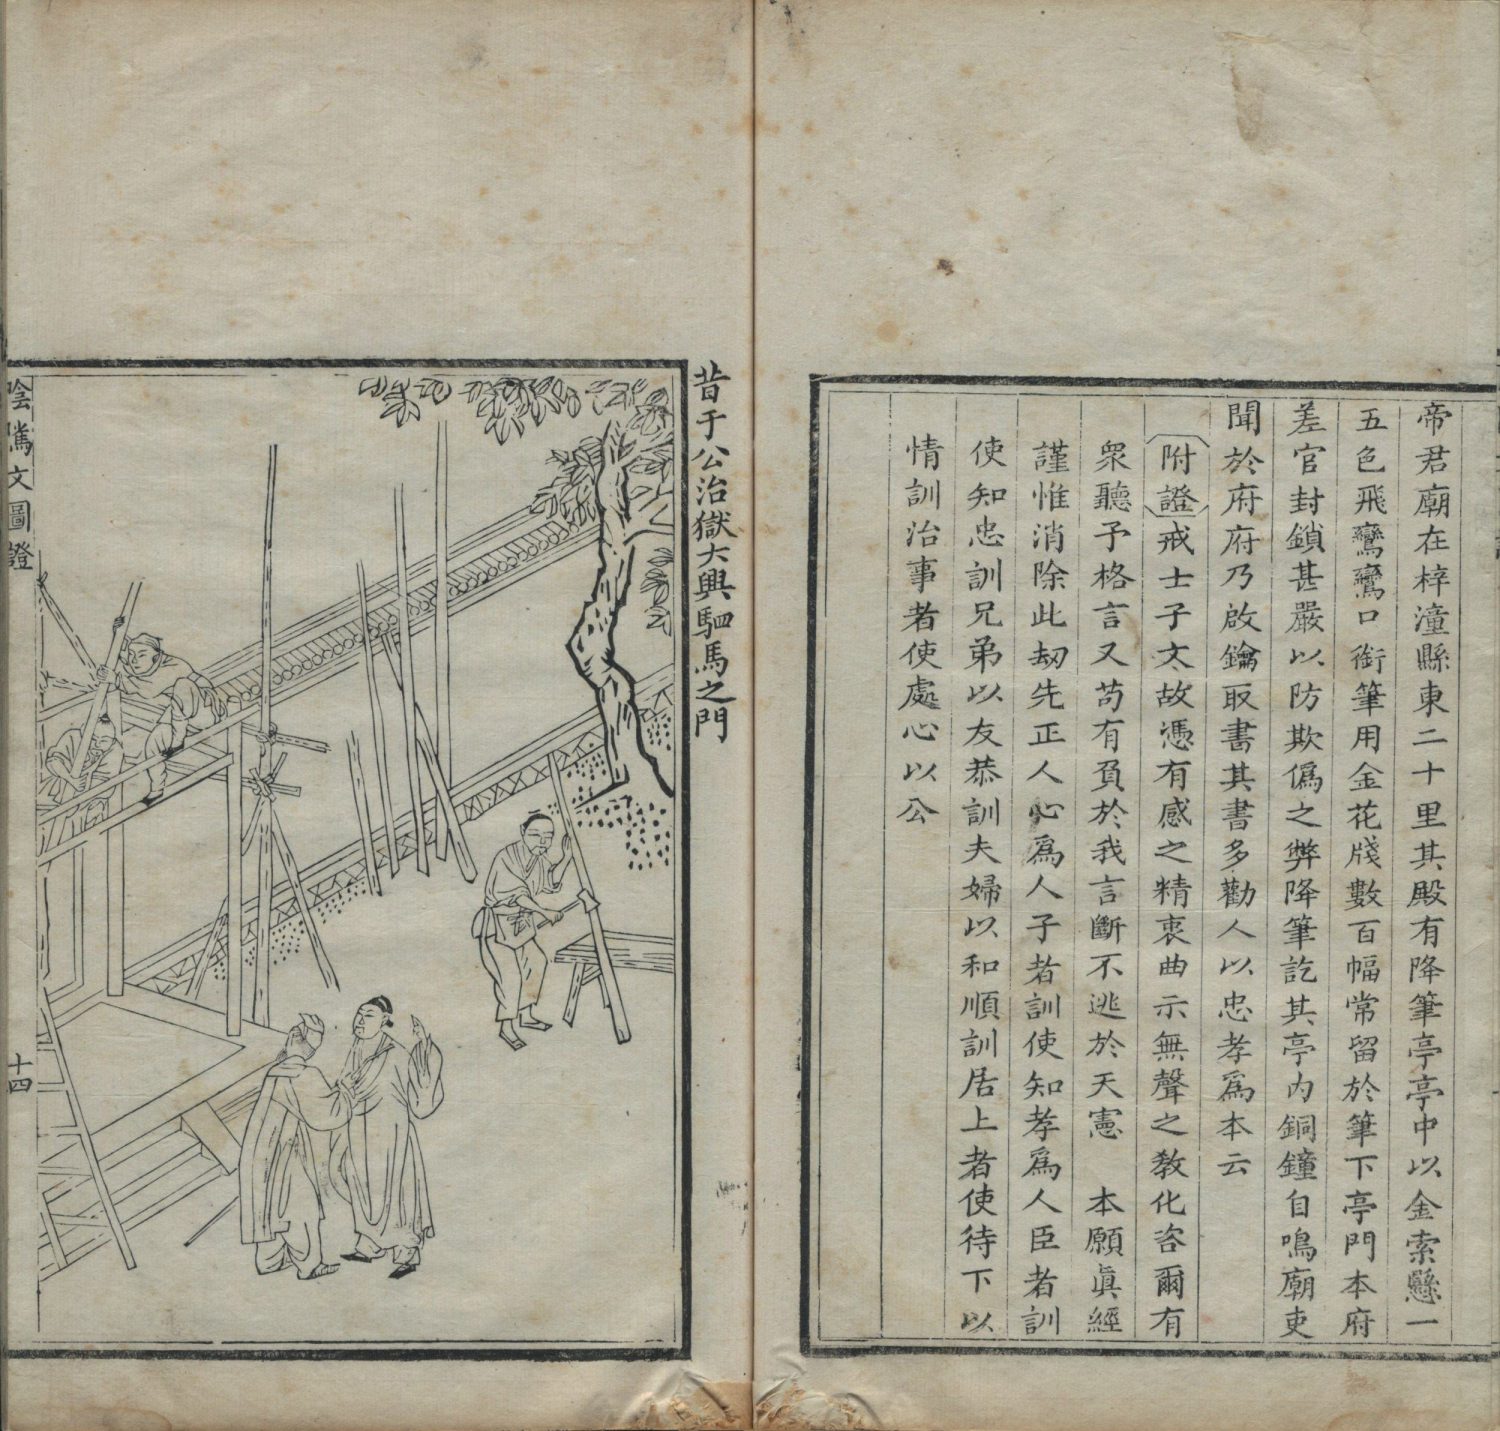 帝君廟在梓潼縣東二十里其殿有降筆亭亭中以金索懸一
五色飛鸞鸞口銜筆用金花牋數百幅常留於筆下亭門本府
差官封鎖甚嚴以防欺僞之弊降筆訖其亭內銅鐘自鳴廟吏
聞於府府乃啟鑰取書其書多勸人以忠孝爲本云
附證戒士子文故憑有感之精衷曲示無聲之教化咨爾有
衆聽予格言又苟有負於我言斷不逃於天憲　本願眞經
謹惟消除此刼先正人心爲人子者訓使知孝爲人臣者訓
使知忠訓兄弟以友恭訓夫婦以和順訓居上者使待下以
情訓治事者使處心以公
昔于公治獄大興駟馬之門
陰隲文圖證
十四